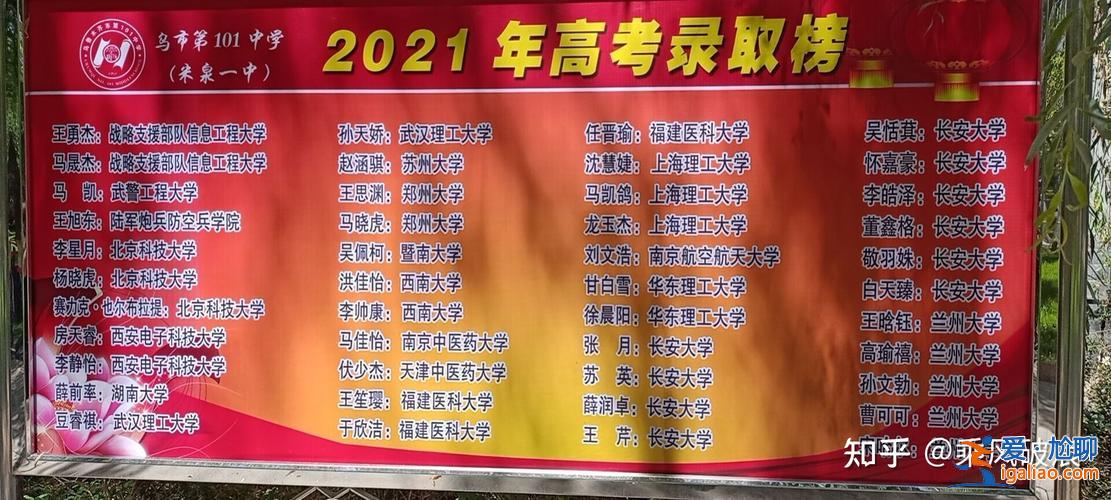 乌市第101中学
（米泉一中）
2021年高考录取榜
王勇杰：战略支援部队信息工程大学
马晟杰：战略支援部队信息工程大学
马 凯：武警工程大学
王旭东：陆军炮兵防空兵学院
李星月：北京科技大学
杨晓虎：北京科技大学
赛力克·也尔布拉提：北京科技大学
房天睿：西安电子科技大学
李静怡：西安电子科技大学
薛前率：湖南大学
豆睿祺：武汉理工大学
孙天娇：武汉理工大学
赵涵骐：苏州大学
王思渊：郑州大学
马晓虎：郑州大学
吴佩柯：暨南大学
洪佳怡：西南大学
李帅康：西南大学
马佳怡：南京中医药大学
伏少杰：天津中医药大学
王笙璎：福建医科大学
于欣洁：福建医科大学
任晋瑜：福建医科大学
沈慧婕：上海理工大学
马凯鸽：上海理工大学
龙玉杰：上海理工大学
刘文浩：南京航空航天大学
甘白雪：华东理工大学
徐晨阳：华东理工大学
张 月：长安大学
苏 英：长安大学
薛润卓：长安大学
王 芹：长安大学
吴恬萁：长安大学
怀嘉豪：长安大学
李皓泽：长安大学
董鑫格：长安大学
敬羽姝：长安大学
白天臻：长安大学
王晗钰：兰州大学
高瑜禧：兰州大学
孙文勃：兰州大学
曹可可：兰州大学
知乎 @乘风破浪
爱尬聊
igaliao.com